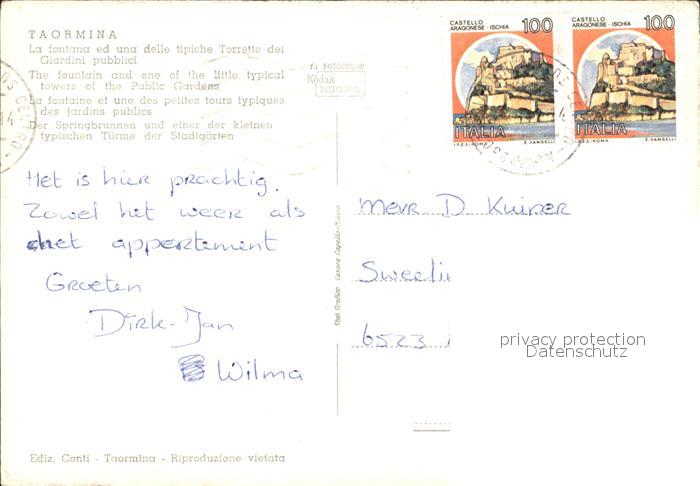 TAORMINA
La fontana ed una delle tipiche Torrette dei
Giardini pubblici
The fountain and one of the little typical
towers of the Public Gardens
La fontaine et une des petites tours typiques
des jardins publics
Der Springbrunnen und einer der kleinen
typischen Türme der Stadtgärten
FOTOCOLOR
Kodak
EKTACHROME
CASTELLO
ARAGONESE - ISCHIA 100
ITALIA
I.P.Z.S. - ROMA E. VANGELLI
CASTELLO
ARAGONESE - ISCHIA 100
ITALIA
I.P.Z.S. - ROMA E. VANGELLI
Het is hier prachtig.
Zowel het weer als
het appertement
Groeten
Dirk-Jan
Wilma
Mevr D. Kuiper
Sweeli
6523
privacy protection
Datenschutz
Ediz. Conti - Taormina - Riproduzione vietata